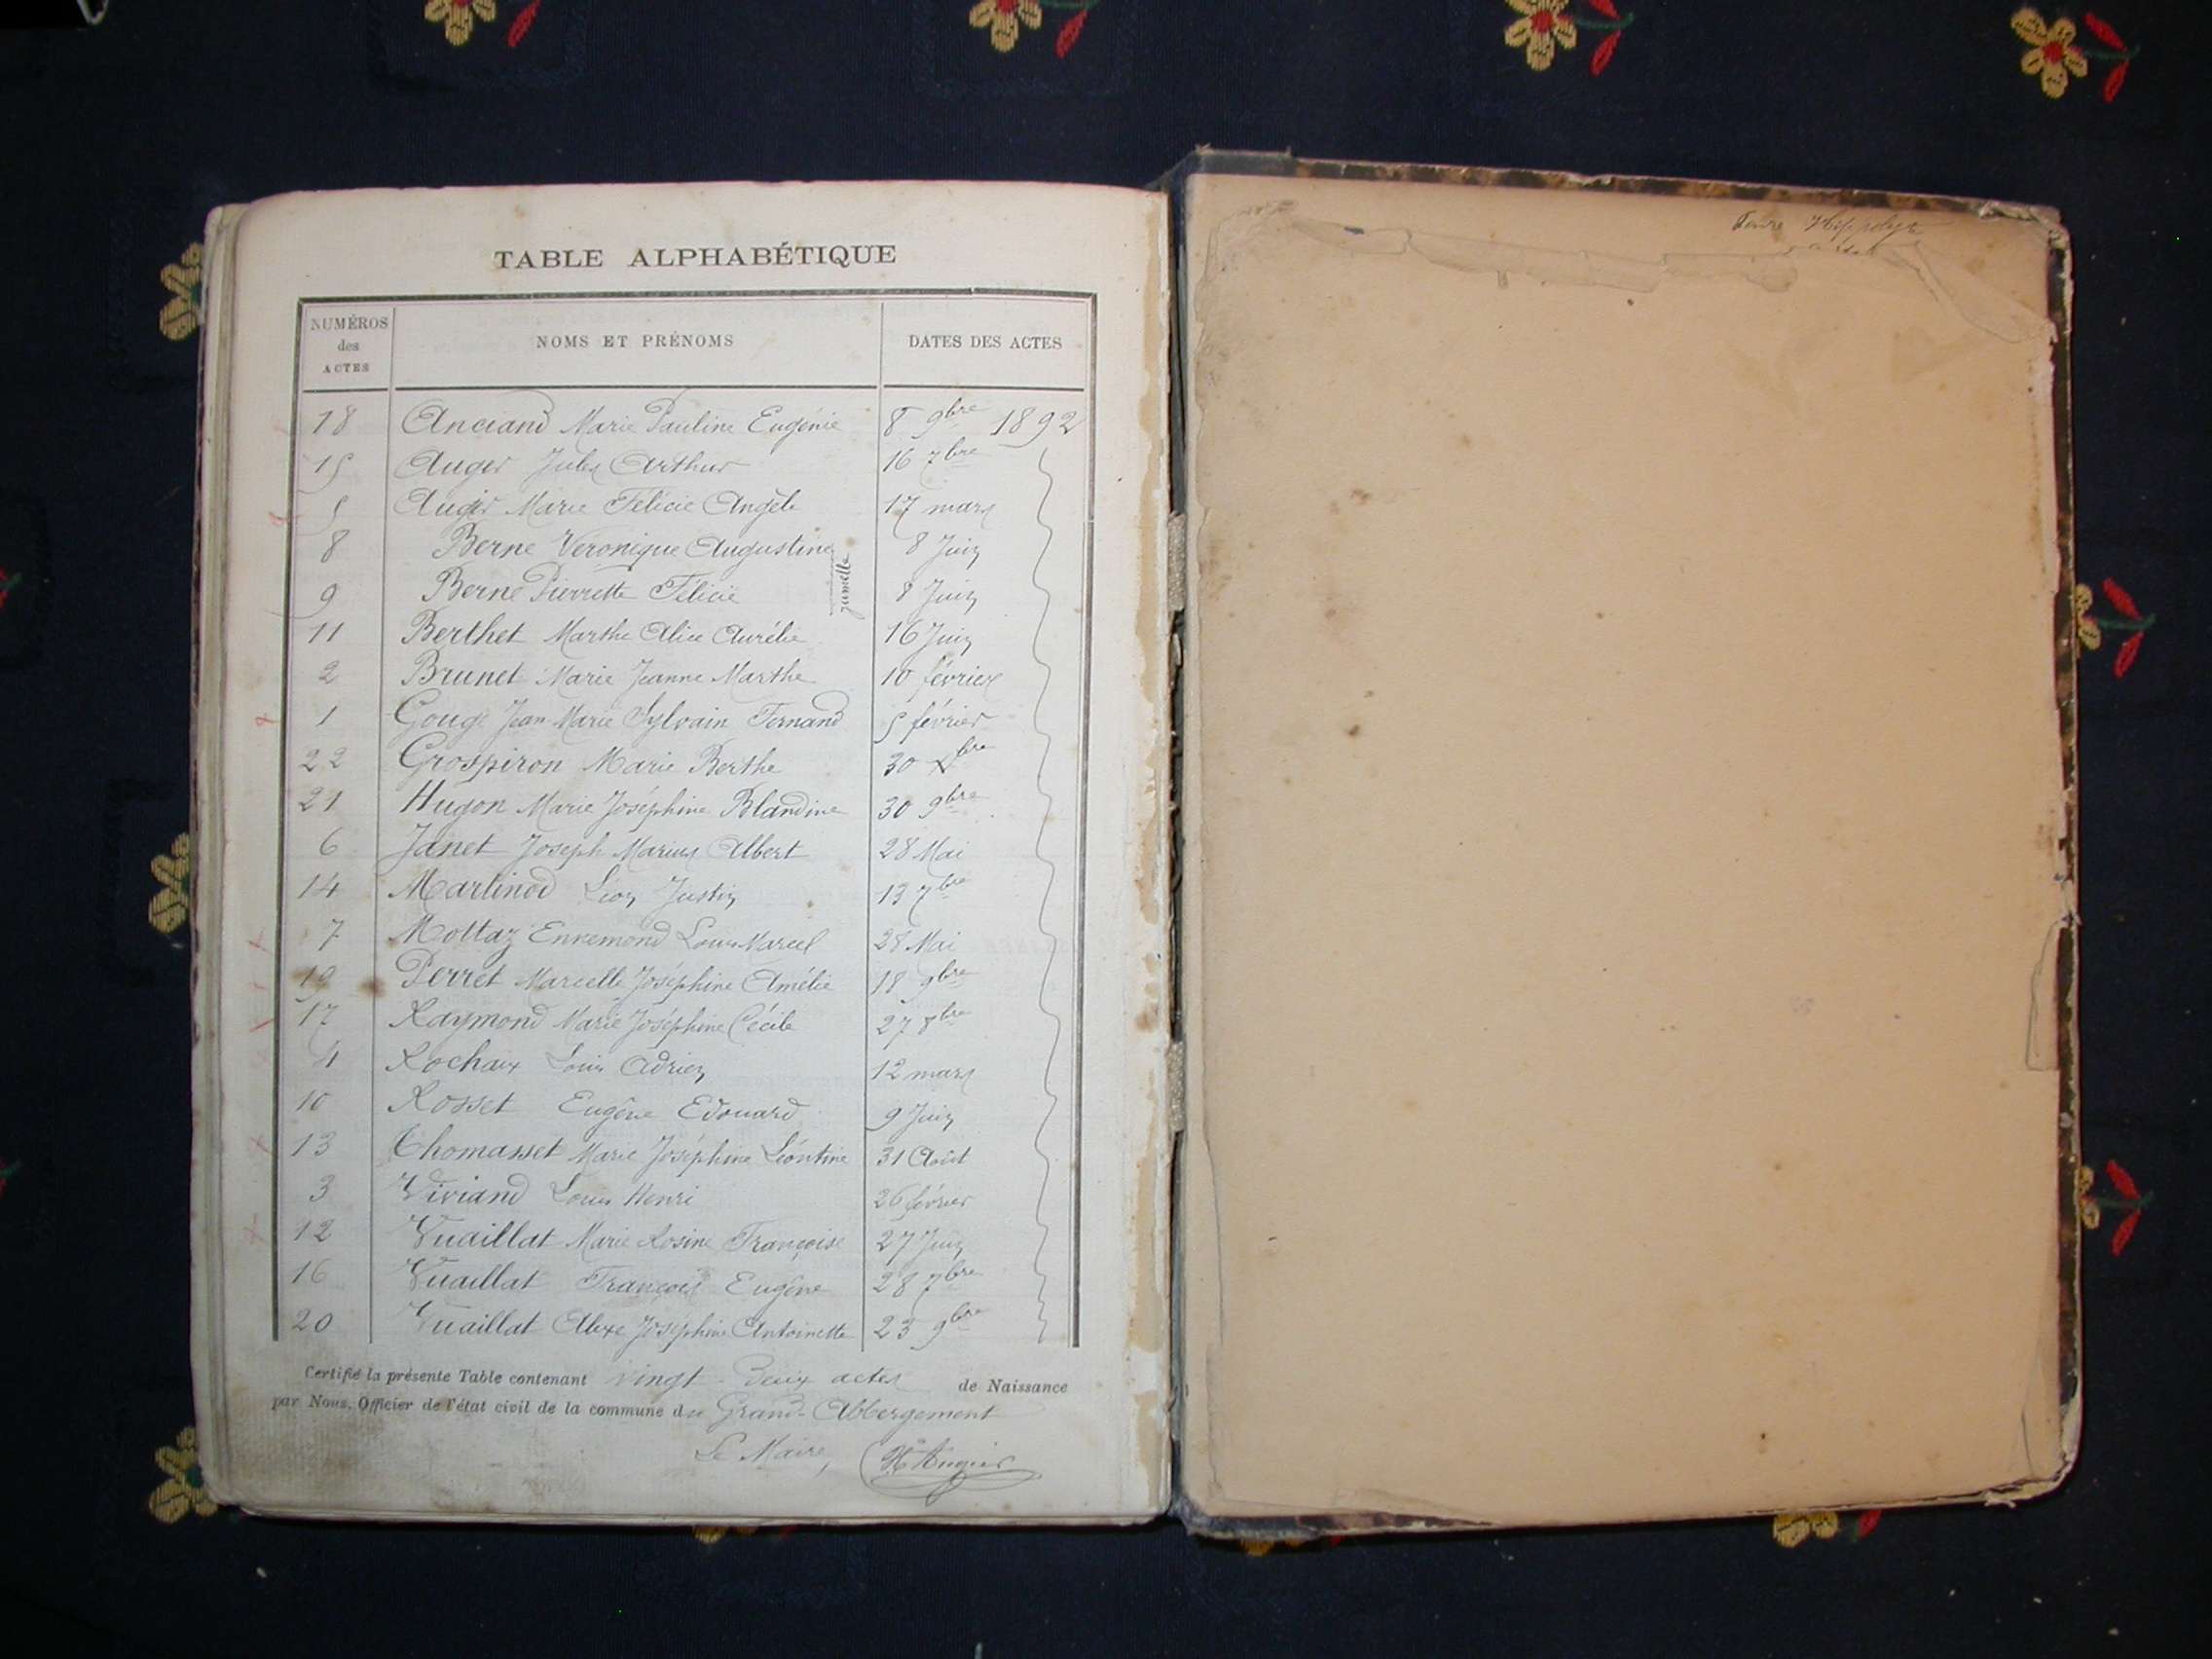 TABLE ALPHABÉTIQUE
NUMÉROS des ACTES NOMS ET PRÉNOMS DATES DES ACTES
18 Anciand Marie Pauline Eugénie 8 9bre 1892
15 Auger Jules Arthur 16 7bre
5 Auger Marie Félicie Angèle 17 mars
8 Berne Véronique Augustine 8 Juin
jumelle
9 Berne Pierrette Félicie 8 Juin
11 Berthet Marthe Alice Aurélie 16 Juin
2 Brunet Marie Jeanne Marthe 10 février
1 Gouge Jean Marie Sylvain Fernand 5 février
22 Grospiron Marie Berthe 30 Xbre
21 Hugon Marie Joséphine Blandine 30 9bre
6 Janet Joseph Marius Albert 28 Mai
14 Martinod Léon Justin 13 7bre
7 Mottaz Ennemond Louis Marcel 28 Mai
19 Perret Marcelle Joséphine Amélie 18 9bre
17 Raymond Marie Joséphine Cécile 27 8bre
4 Rochaix Louis Adrien 12 mars
10 Rosset Eugène Edouard 9 Juin
13 Thomasset Marie Joséphine Léontine 31 Août
3 Viviand Louis Henri 26 février
12 Vuaillat Marie Rosine Françoise 27 Juin
16 Vuaillat François Eugène 28 7bre
20 Vuaillat Joséphine Antoinette 23 9bre
Certifié la présente Table contenant vingt-deux actes de Naissance
par Nous, Officier de l'état civil de la commune du Grand-Abbergement
Le Maire,